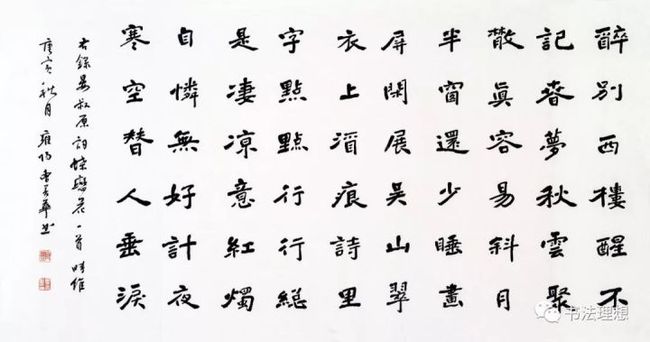 醉別西樓醒不
記春夢秋雲聚
散眞容易斜月
半窗還少睡畫
屏閑展吳山翠
衣上酒痕詩里
字點點行行總
是凄凉意紅燭
自憐無好計夜
寒空替人垂淚
右錄晏叔原詞蝶戀花一首時維
庚寅秋月
书法理想